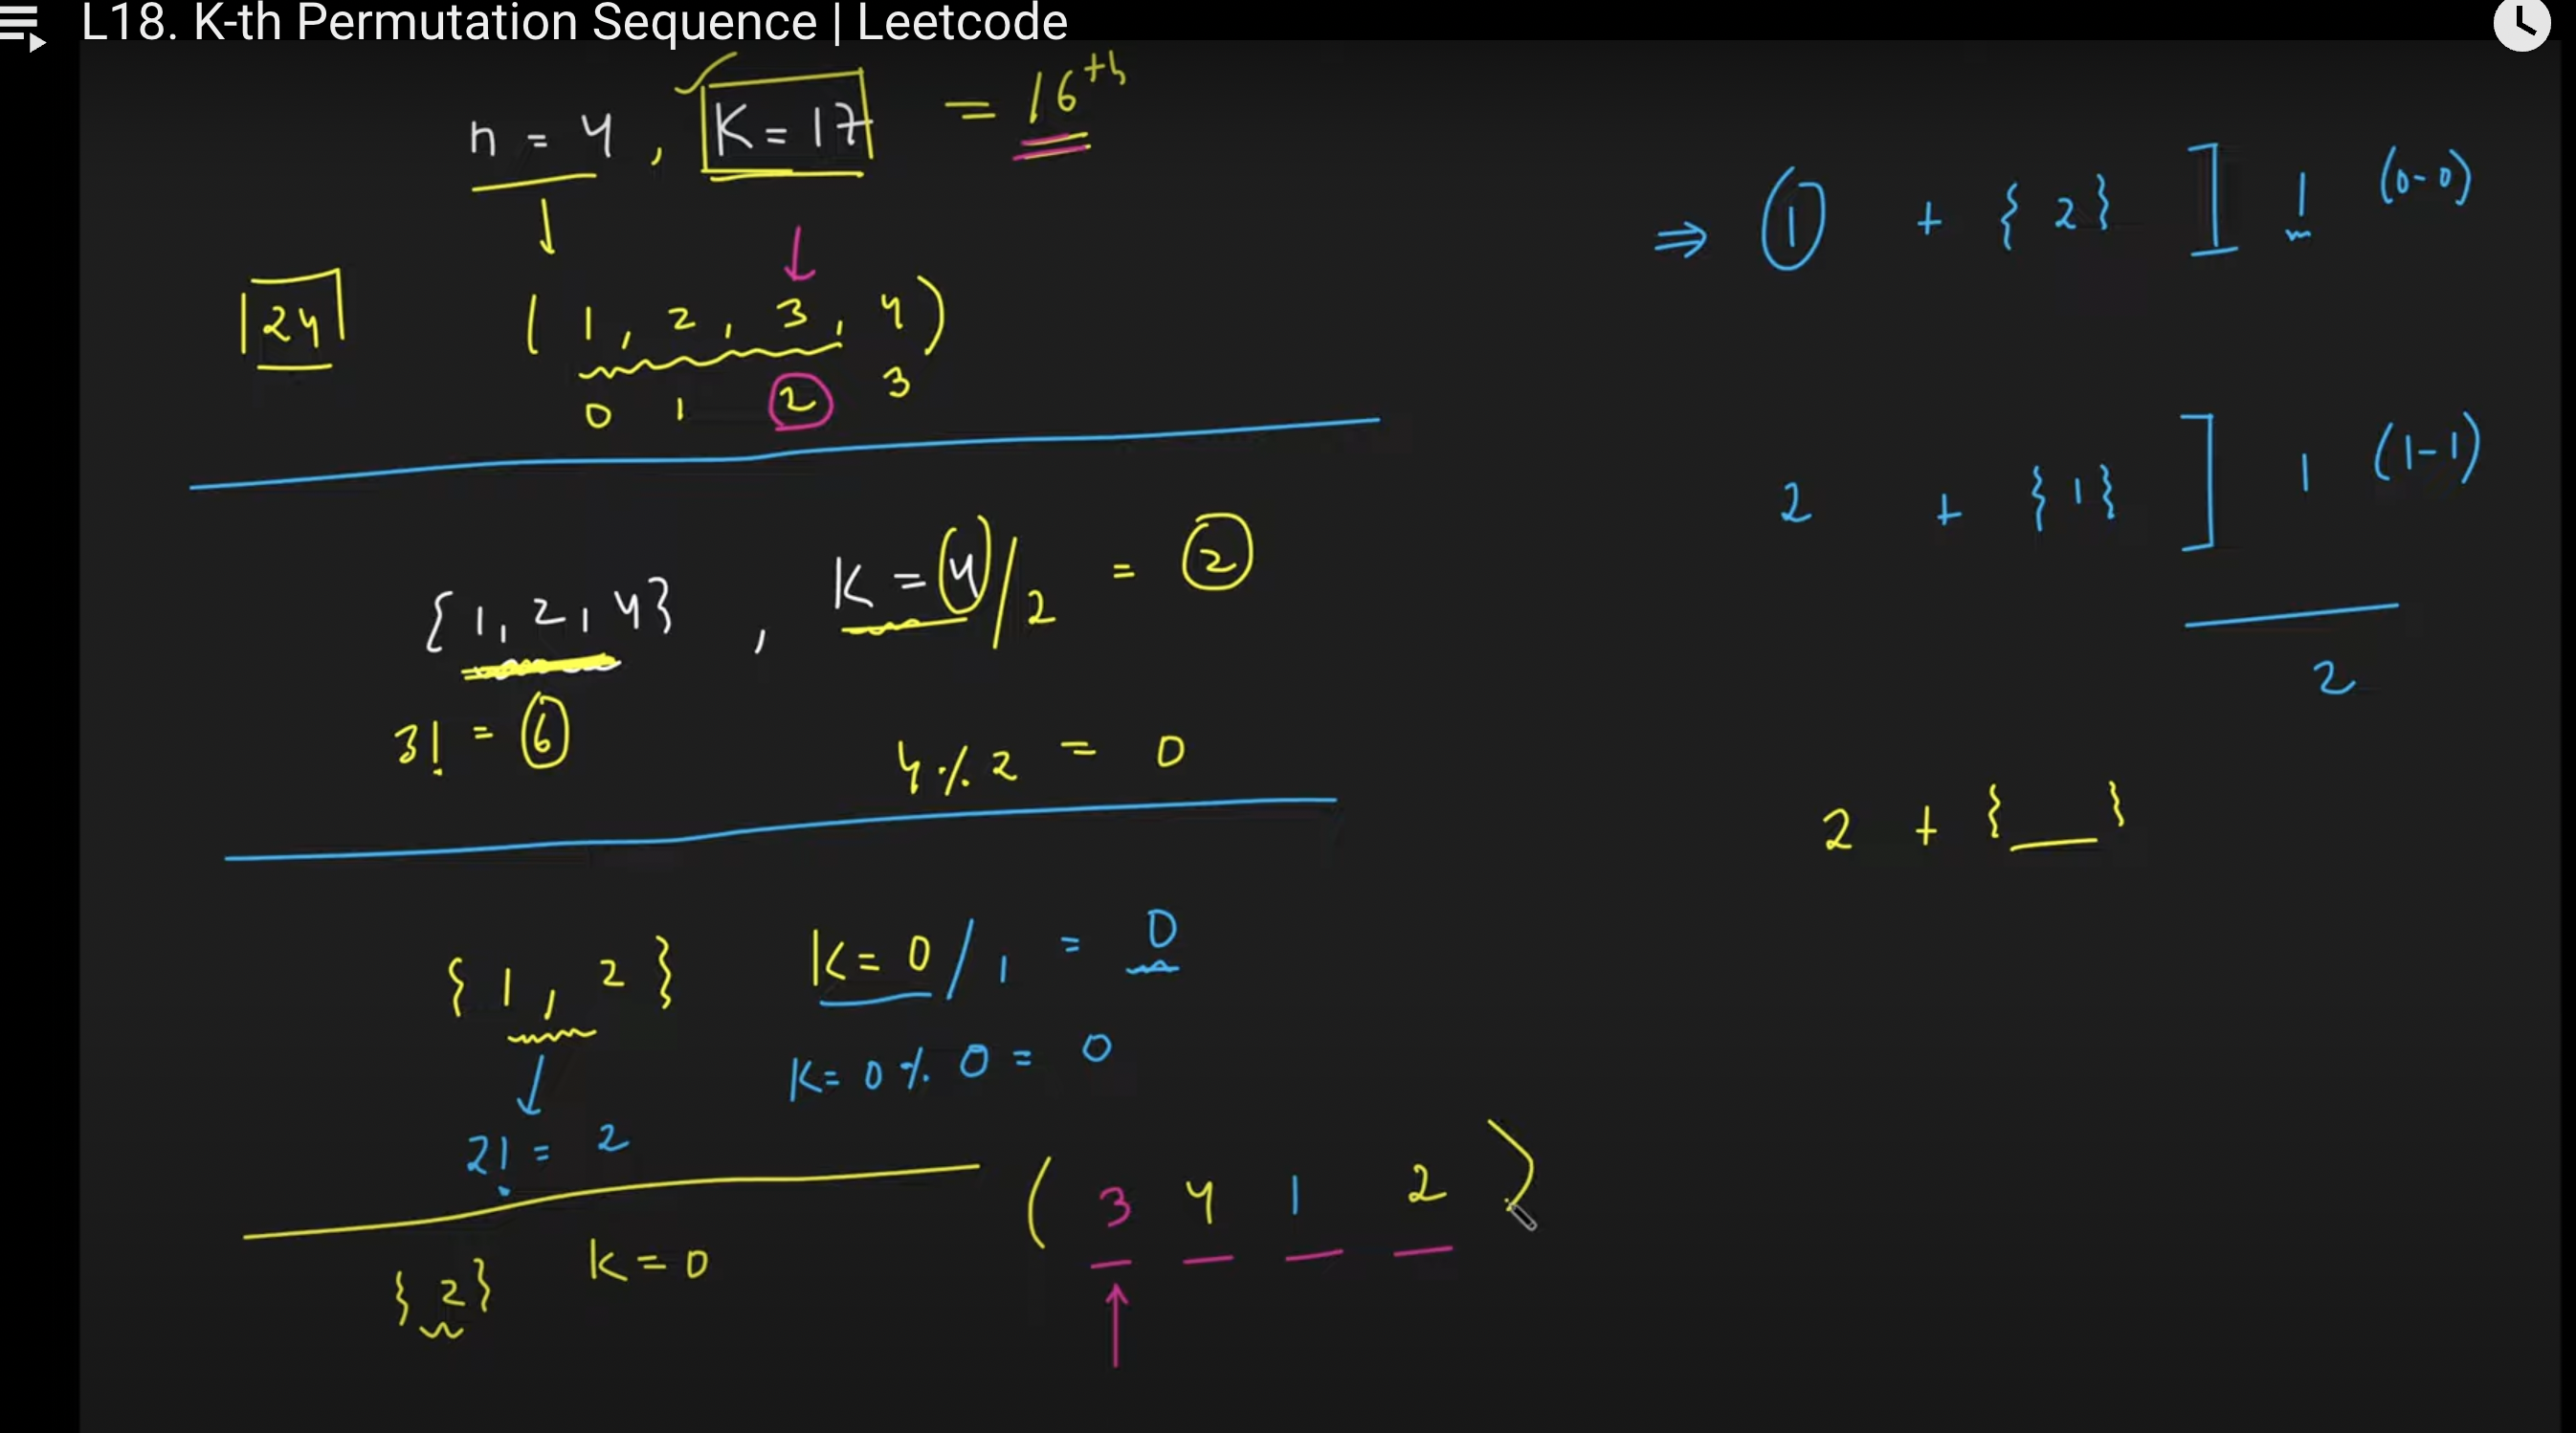 L18. K-th Permutation Sequence | Leetcode
n = 4 , K = 17 = 16th
24
( 1 , 2 , 3 , 4 )
0 1 2 3
{ 1, 2, 4 } , K = 4 / 2 = 2
3! = 6
4 % 2 = 0
{ 1 , 2 } K = 0 / 1 = 0
K = 0 % 0 = 0
2! = 2
{ 2 } K = 0
( 3 4 1 2 )
⇒ 1 + { 2 } ] 1 (0-0)
2 + { 1 } ] 1 (1-1)
2
2 + { __ }